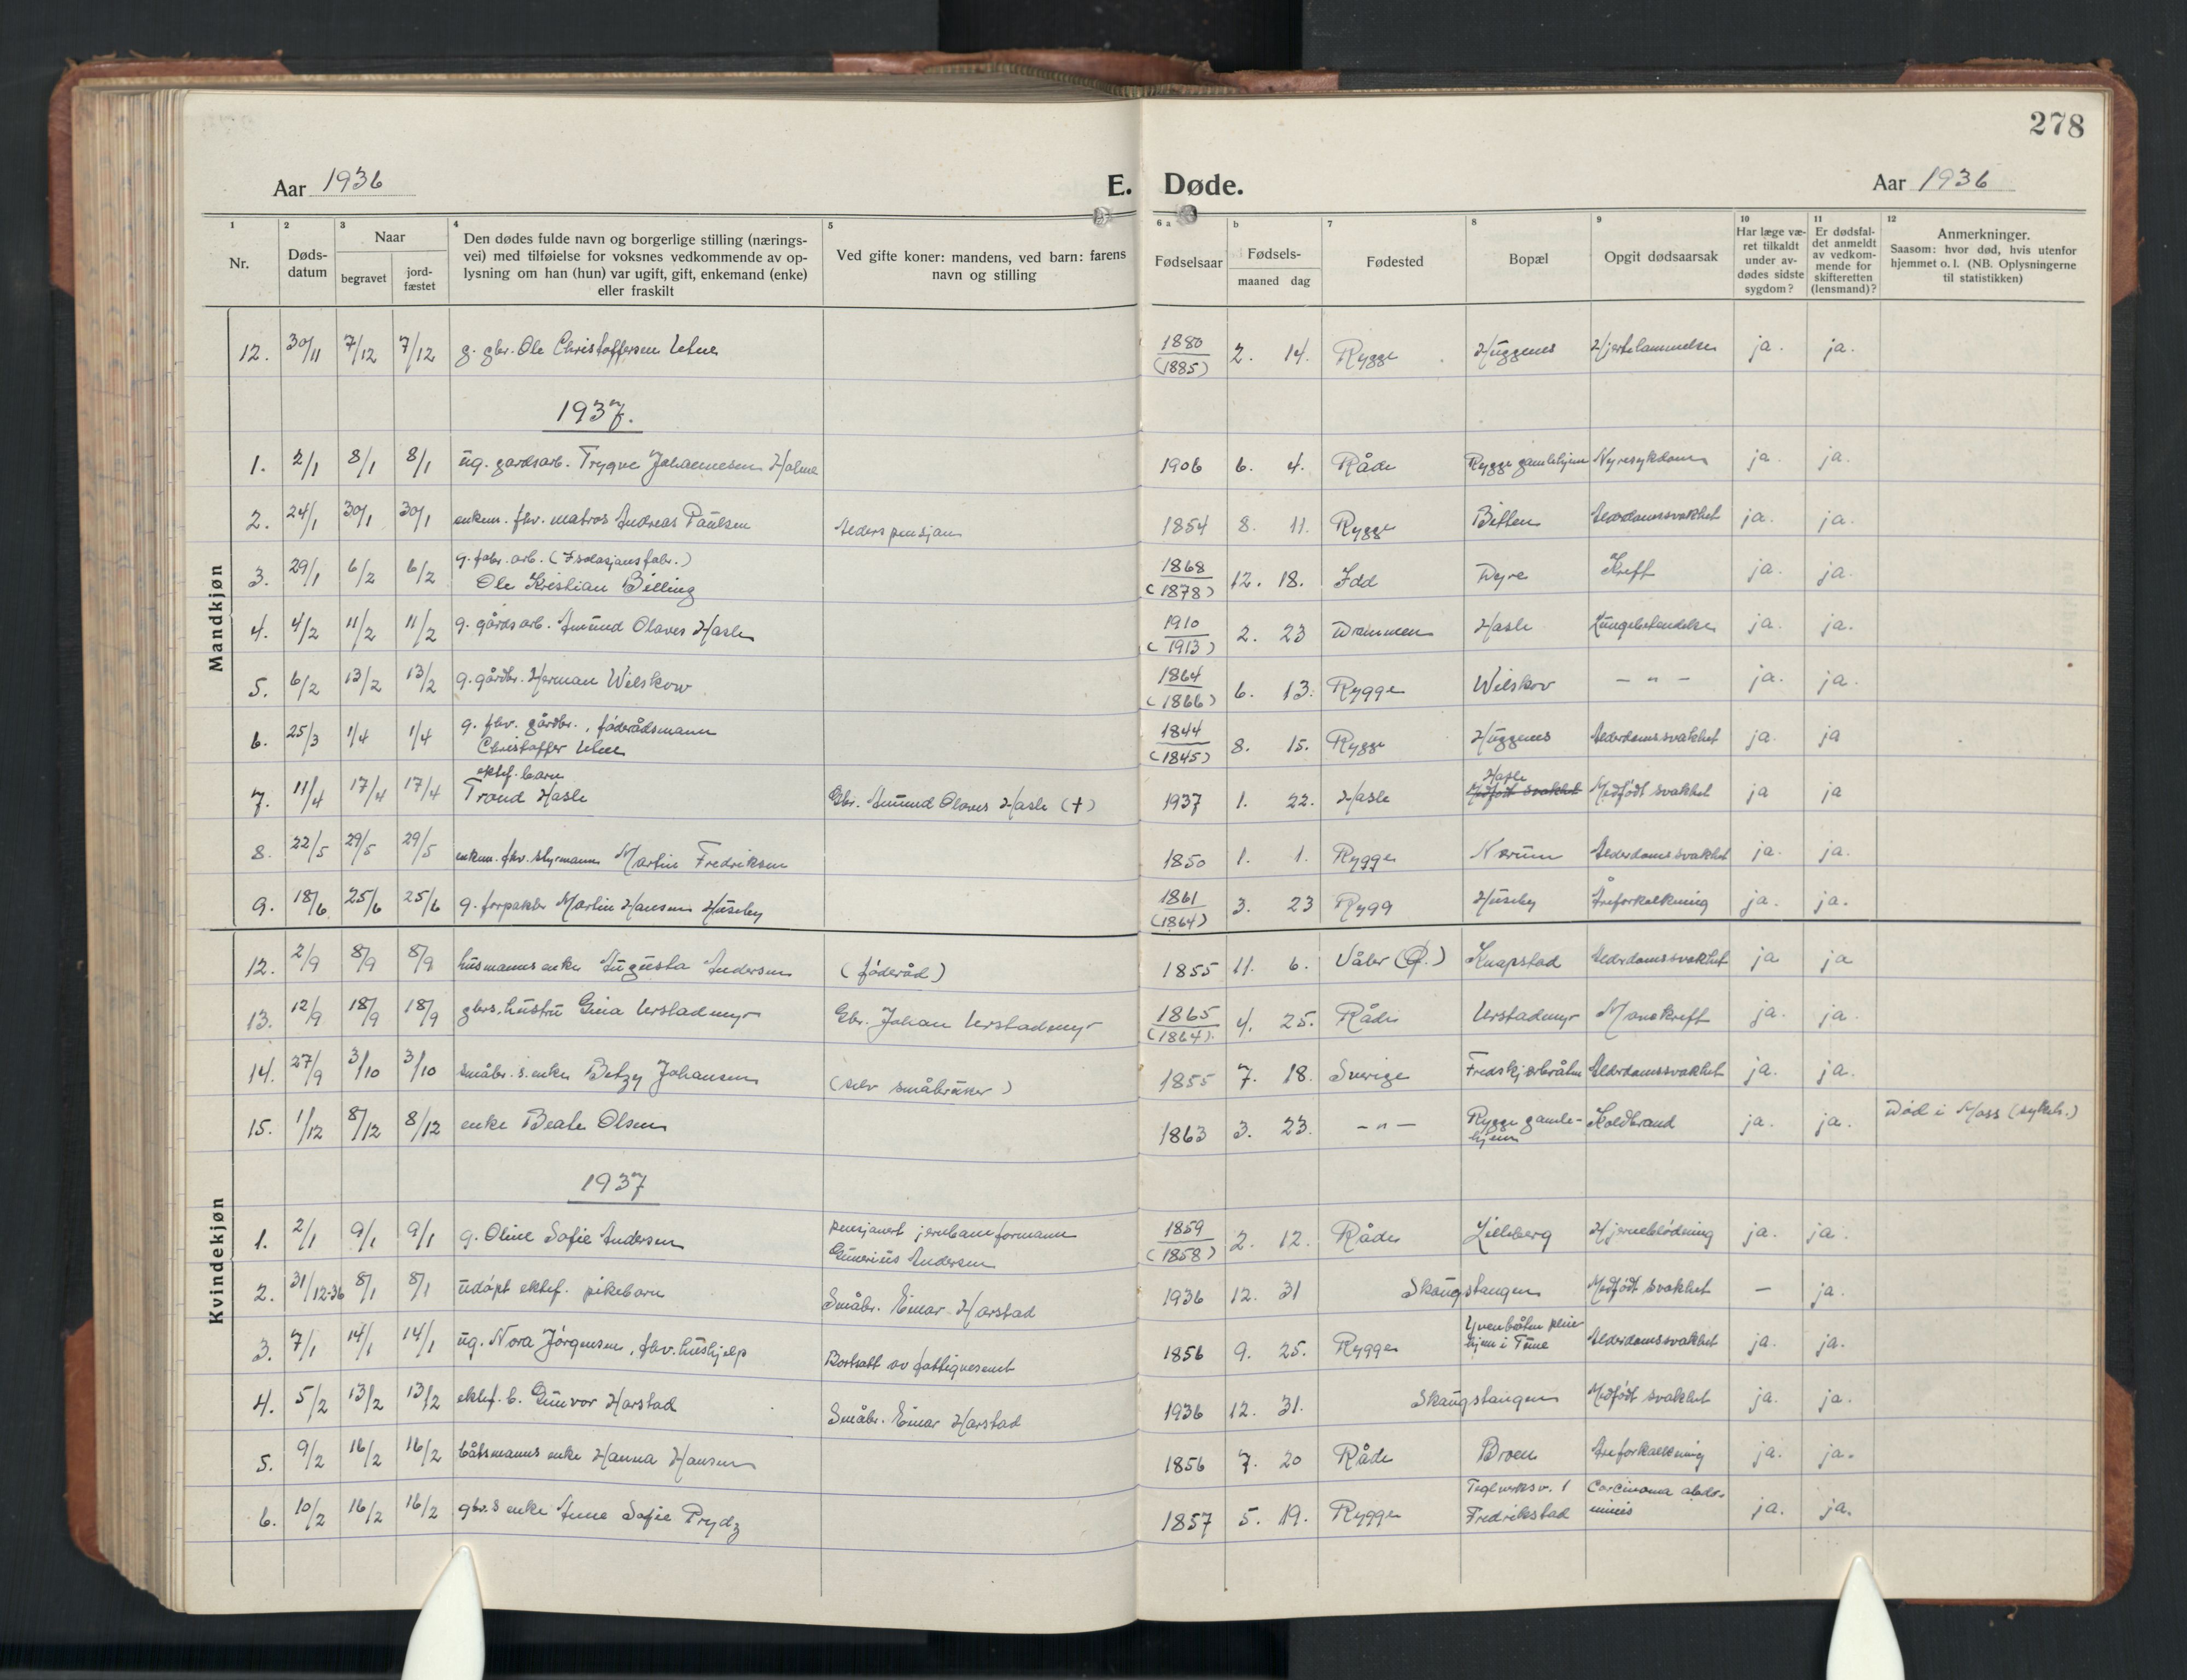 278
Aar 1936 E. Døde. Aar 1936
1 2 3 4 5 6 a b 7 8 9 10 11 12
Nr. Døds-datum Naar begravet jord-fæstet Den dødes fulde navn og borgerlige stilling (nærings-vei) med tilføielse for voksnes vedkommende av op-lysning om han (hun) var ugift, gift, enkemand (enke) eller fraskilt Ved gifte koner: mandens, ved barn: farens navn og stilling Fødselsaar Fødsels- maaned dag Fødested Bopæl Opgit dødsaarsak Har læge væ-ret tilkaldt under av-dødes sidste sygdom? Er dødsfal-det anmeldt av vedkom-mende for skifteretten (lensmand)? Anmerkninger. Saasom: hvor død, hvis utenfor hjemmet o. l. (NB. Oplysningerne til statistikken)
Mandkjøn
12. 30/11 7/12 7/12 g. gbr. Ole Christoffersen 1880 (1885) 2. 14. Rygge Huggenes Hjertelammelse ja. ja.
1937.
1. 2/1 8/1 8/1 ug. gardsarb. Trygve Johannesen Holme 1906 6. 4. Råde Rygge gamlehjem Nyresykdom ja ja.
2. 24/1 30/1 30/1 enkem. fhv. matros Andreas Paulsen Alderspensjon 1854 8. 11. Rygge Botten Alderdomssvakhet ja. ja.
3. 29/1 6/2 6/2 g. fabr. arb. (Isolasjonsfabr.) Ole Kristian Billing 1868 (1878) 12. 18. Idd Dyre Kreft ja. ja.
4. 4/2 11/2 11/2 g. gårdsarb. Amund Olaves Hasle 1910 (1913) 2. 23 Drammen Hasle Lungebetendelse ja. ja.
5. 6/2 13/2 13/2 g. gårdbr. Herman Wilskow 1864 (1866) 6. 13. Rygge Wilskov - " - ja. ja.
6. 25/3 1/4 1/4 g. fhv. gårdbr., føderådsmann Christoffer 1844 (1845) 8. 15. Rygge Huggenes Alderdomssvakhet ja. ja
7. 11/4 17/4 17/4 ektef. barn Trond Hasle Gbr. Amund Olaves Hasle (†) 1937 1. 22. Hasle Hasle Medfødt svakhet Medfødt svakhet ja ja
8. 22/5 29/5 29/5 enkem. fhv. styrmann Martin Fredriksen 1850 1. 1. Rygge Nærum Alderdomssvakhet ja. ja.
9. 18/6 25/6 25/6 g. forpakter Martin Hansen Huseby 1861 (1864) 3. 23 Rygg Huseby Åreforkalkning ja. ja.
Kvindekjøn
12. 2/9 8/9 8/9 husmanns enke Augusta Andersen (føderåd) 1855 11. 6. Våler (Ø.) Knapstad Alderdomssvakhet ja ja
13. 12/9 18/9 18/9 gbrs. hustru Gina Verstadmyr Gbr. Johan Verstadmyr 1865 (1864). 4. 25. Råde Verstadmyr Mavekreft ja. ja.
14. 27/9 3/10 3/10 småbr.s. enke Betzy Johansen (selv småbruker) 1855 7. 18. Sverige Alderdomssvakhet ja. ja.
15. 1/12 8/12 8/12 enke Beate Olsen 1863 3. 23. - " - Rygge gamle-hjem Koldbrand ja. ja. Død i Moss (sykeh.)
1937
1. 2/1 9/1 9/1 g. Oline Sofie Andersen pensjonert jernbaneformann Gunerius Andersen 1859 (1858) 2. 12. Råde Lilleberg Hjerneblødning ja. ja.
2. 31/12-36 8/1 8/1 udøpt ektef. pikebarn Småbr. Einar Harstad 1936 12. 31 Skaugstangen Medfødt svakhet — ja.
3. 7/1 14/1 14/1 ug. Nora Jørgensen, fhv. hushjelp Bortsatt av fattigvesenet 1856 9. 25. Rygge pleiehjem i Tune Alderdomssvakhet ja. ja.
4. 5/2 13/2 13/2 ektef. b. Gunvor Harstad Småbr. Einar Harstad 1936 12. 31. Skaugstangen Medfødt svakhet ja. ja.
5. 9/2 16/2 16/2 båtsmanns enke Hanna Hansen 1856 7. 20 Råde Broen Åreforkalkning ja. ja.
6. 10/2 16/2 16/2 gbr.s enke Anne Sofie Prydz 1857 5. 19. Rygge Teglverksv. 1 Fredrikstad Carcinoma abdominis ja. ja.